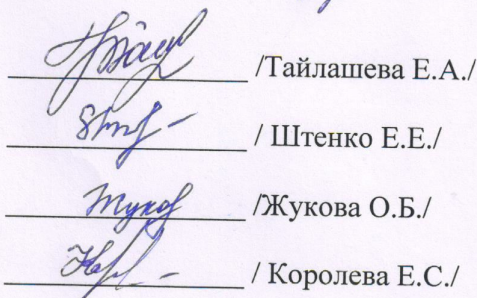 /Тайлашева Е.А./
/ Штенко Е.Е./
/Жукова О.Б./
/ Королева Е.С./